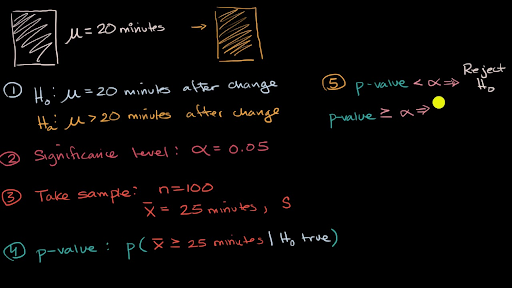 μ = 20 minutes →
① H₀: μ = 20 minutes after change
Hₐ: μ > 20 minutes after change
② Significance level: α = 0.05
③ Take sample: n=100
x̄ = 25 minutes, S
④ p-value: p(x̄ ≥ 25 minutes | H₀ true)
⑤ p-value < α ⇒ Reject H₀
p-value ≥ α ⇒